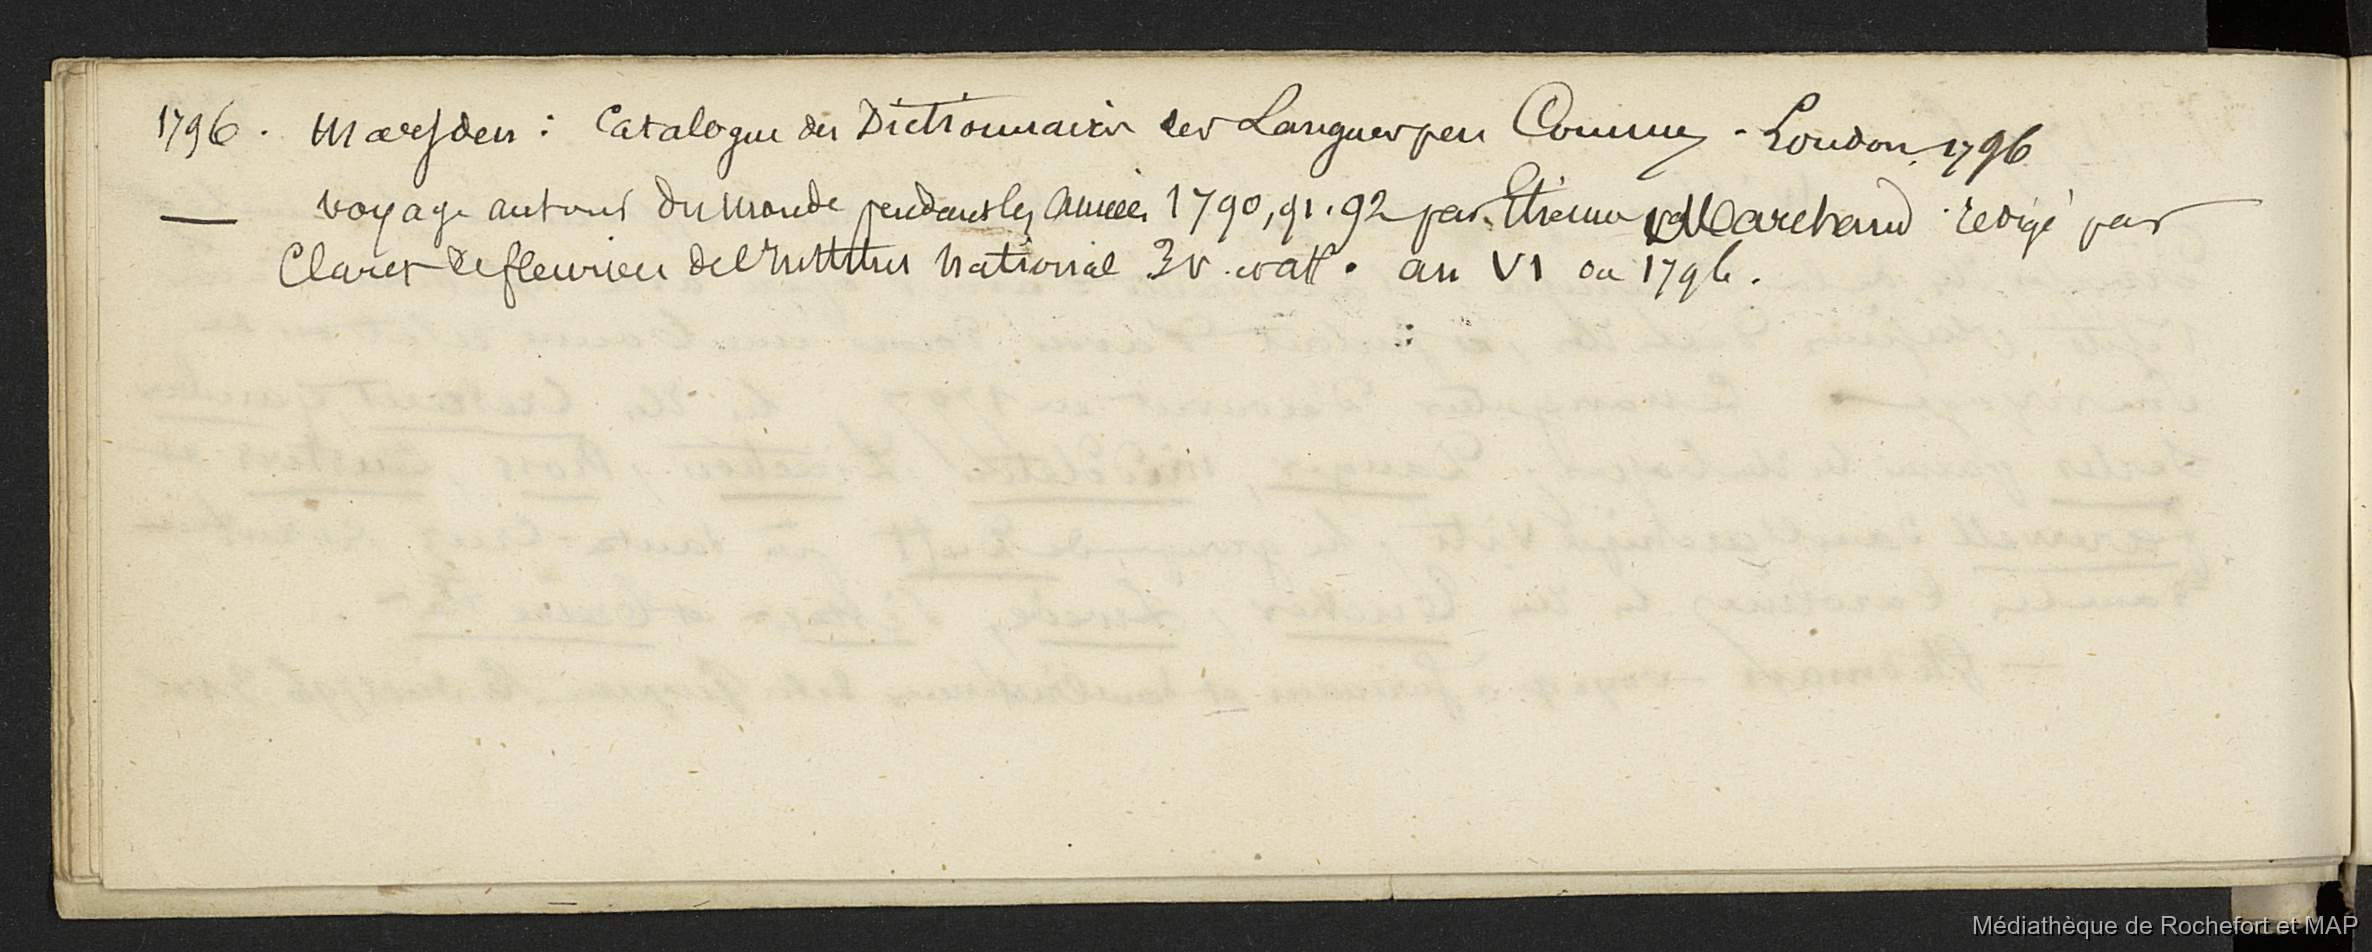 1796. Marsden : Catalogue des Dictionnaires des Langues peu Connues - London, 1796
— voyage autour du monde pendant les années 1790, 91. 92 par Etienne Marchand redigé par
Claret de fleurieu de l'Institut National 3 v. et att. an VI ou 1796.
Médiathèque de Rochefort et MAP